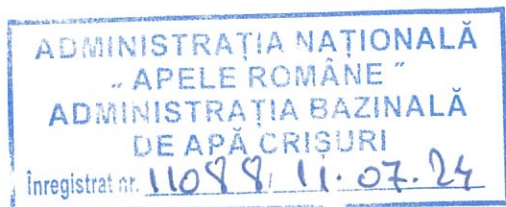 ADMINISTRAȚIA NAȚIONALĂ
„ APELE ROMÂNE ”
ADMINISTRAȚIA BAZINALĂ
DE APĂ CRIȘURI
înregistrat nr. 11088/ 11.07.24